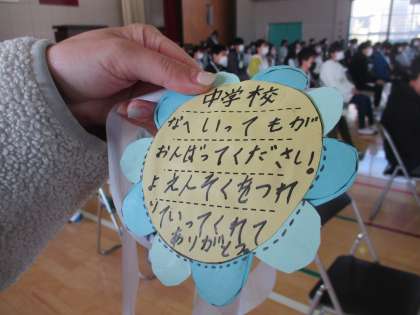 中学校
なへいってもが
おんばってください!
よえんそくをつれ
りていってくれて
ありがとう